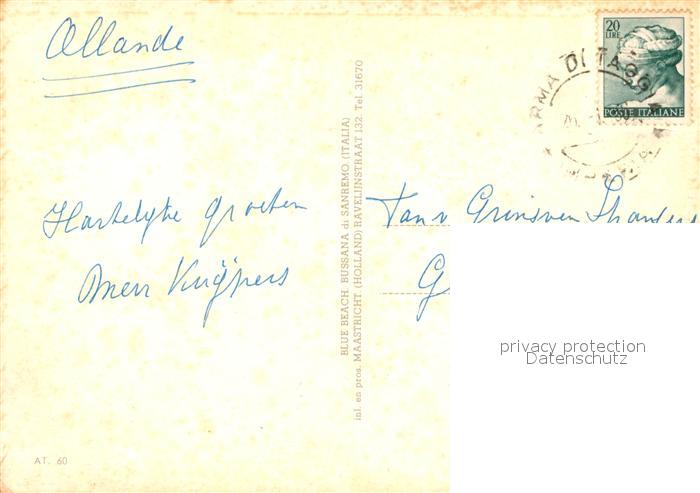 Ollande
20
LIRE
POSTE ITALIANE
ARMA DI TAGG
Hartelyke groeten
Kuypers
BLUE BEACH, BUSSANA di SANREMO (ITALIA)
inl. en pros. MAASTRICHT (HOLLAND) RAVELIJNSTRAAT 132. Tel. 31670
Fam v Grinsven
G
privacy protection
Datenschutz
AT. 60